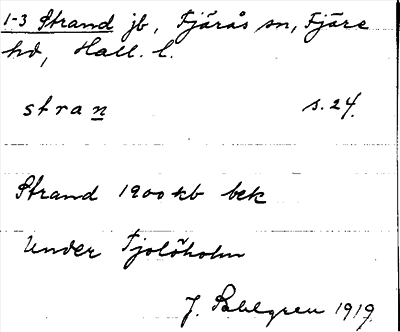 1-3 Strand jb, Fjärås sn, Fjäre
hd, Hall. l.
stran s. 24.
Strand 1900 kb bek
Under Tjolöholm
J. Sahlgren 1919